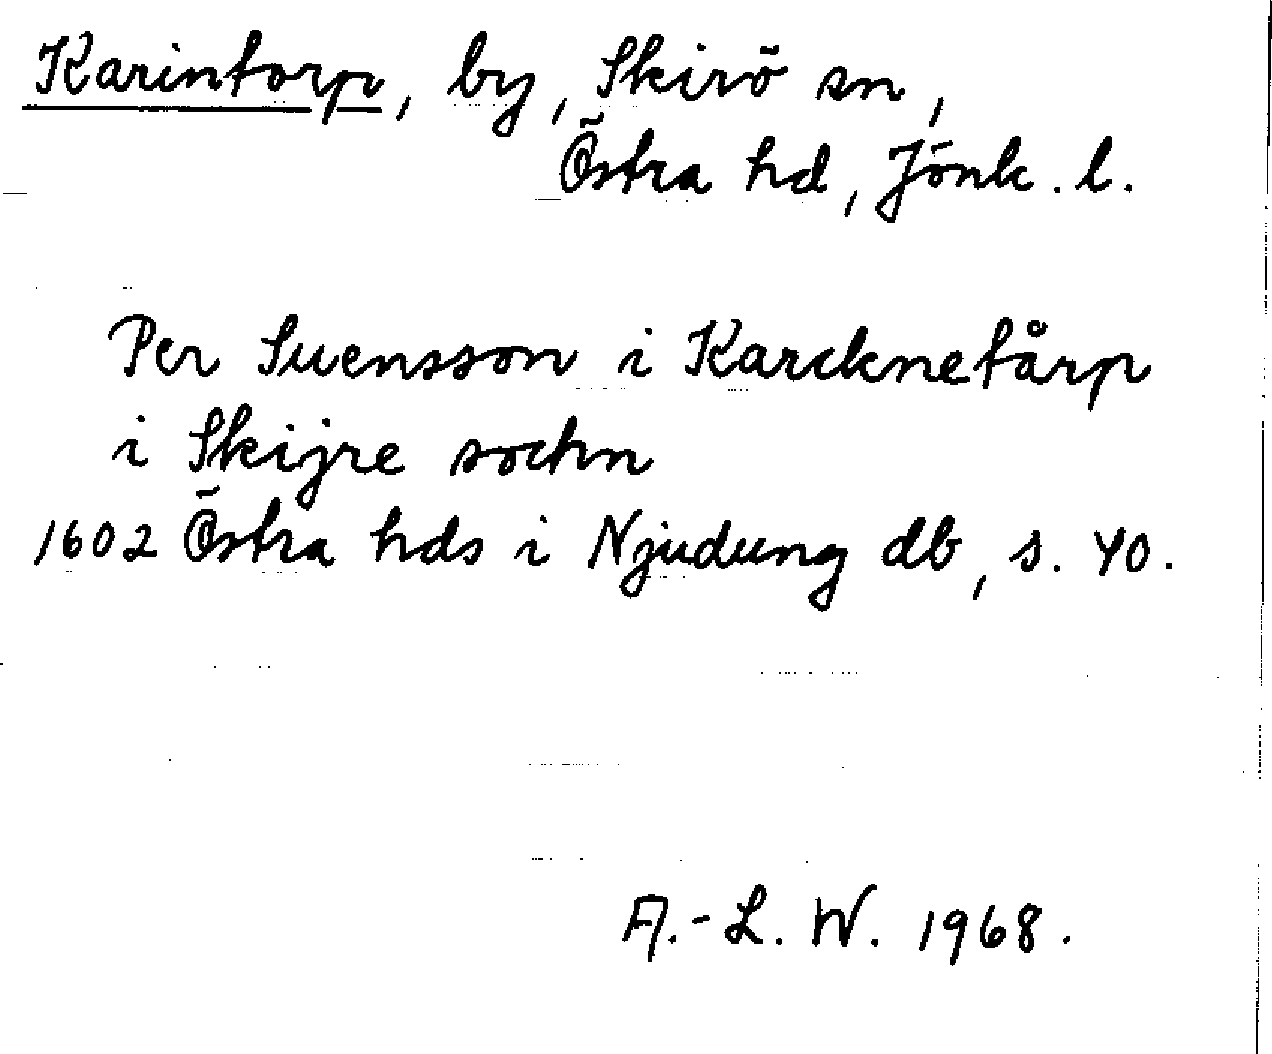 Karintorp, by, Skirö sn,
Östra hd, Jönk. l.
Per Svensson i Karcknetårp
i Skijre sochn
1602 Östra hds i Njudung db, s. 40.
A.-L. W. 1968.